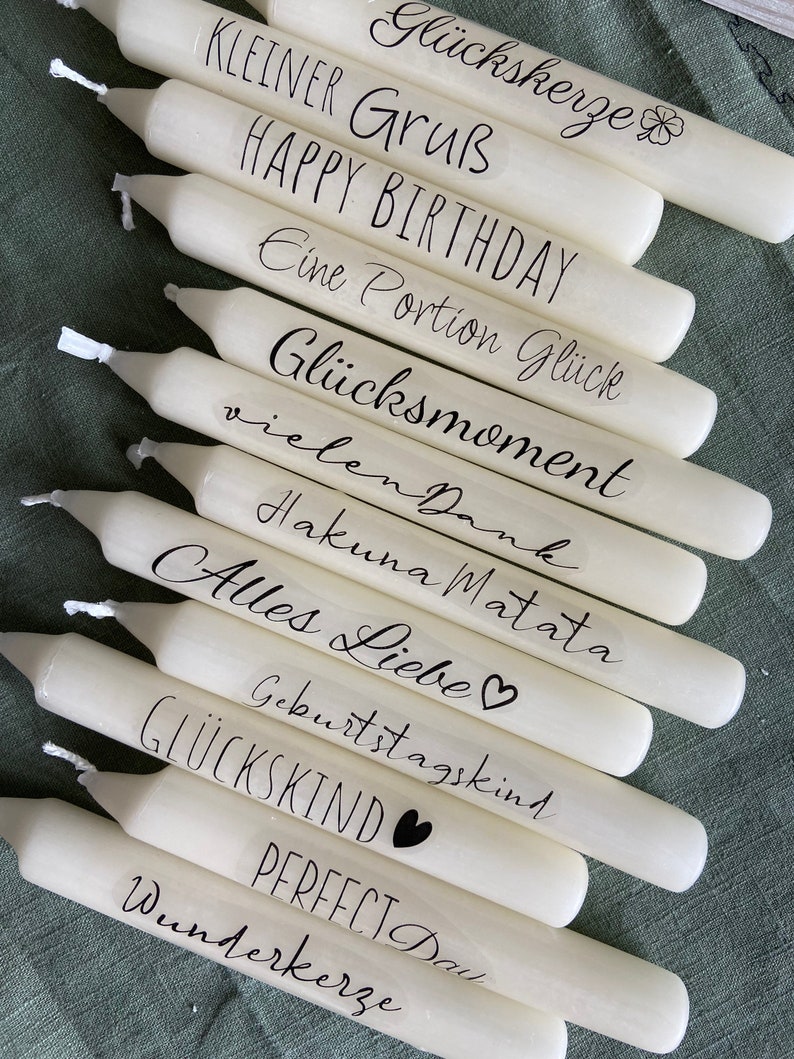 Glückskerze
KLEINER Gruß
HAPPY BIRTHDAY
Eine Portion Glück
Glücksmoment
vielen Dank
Hakuna Matata
Alles Liebe
Geburtstagskind
GLÜCKSKIND
PERFECT Day
Wunderkerze